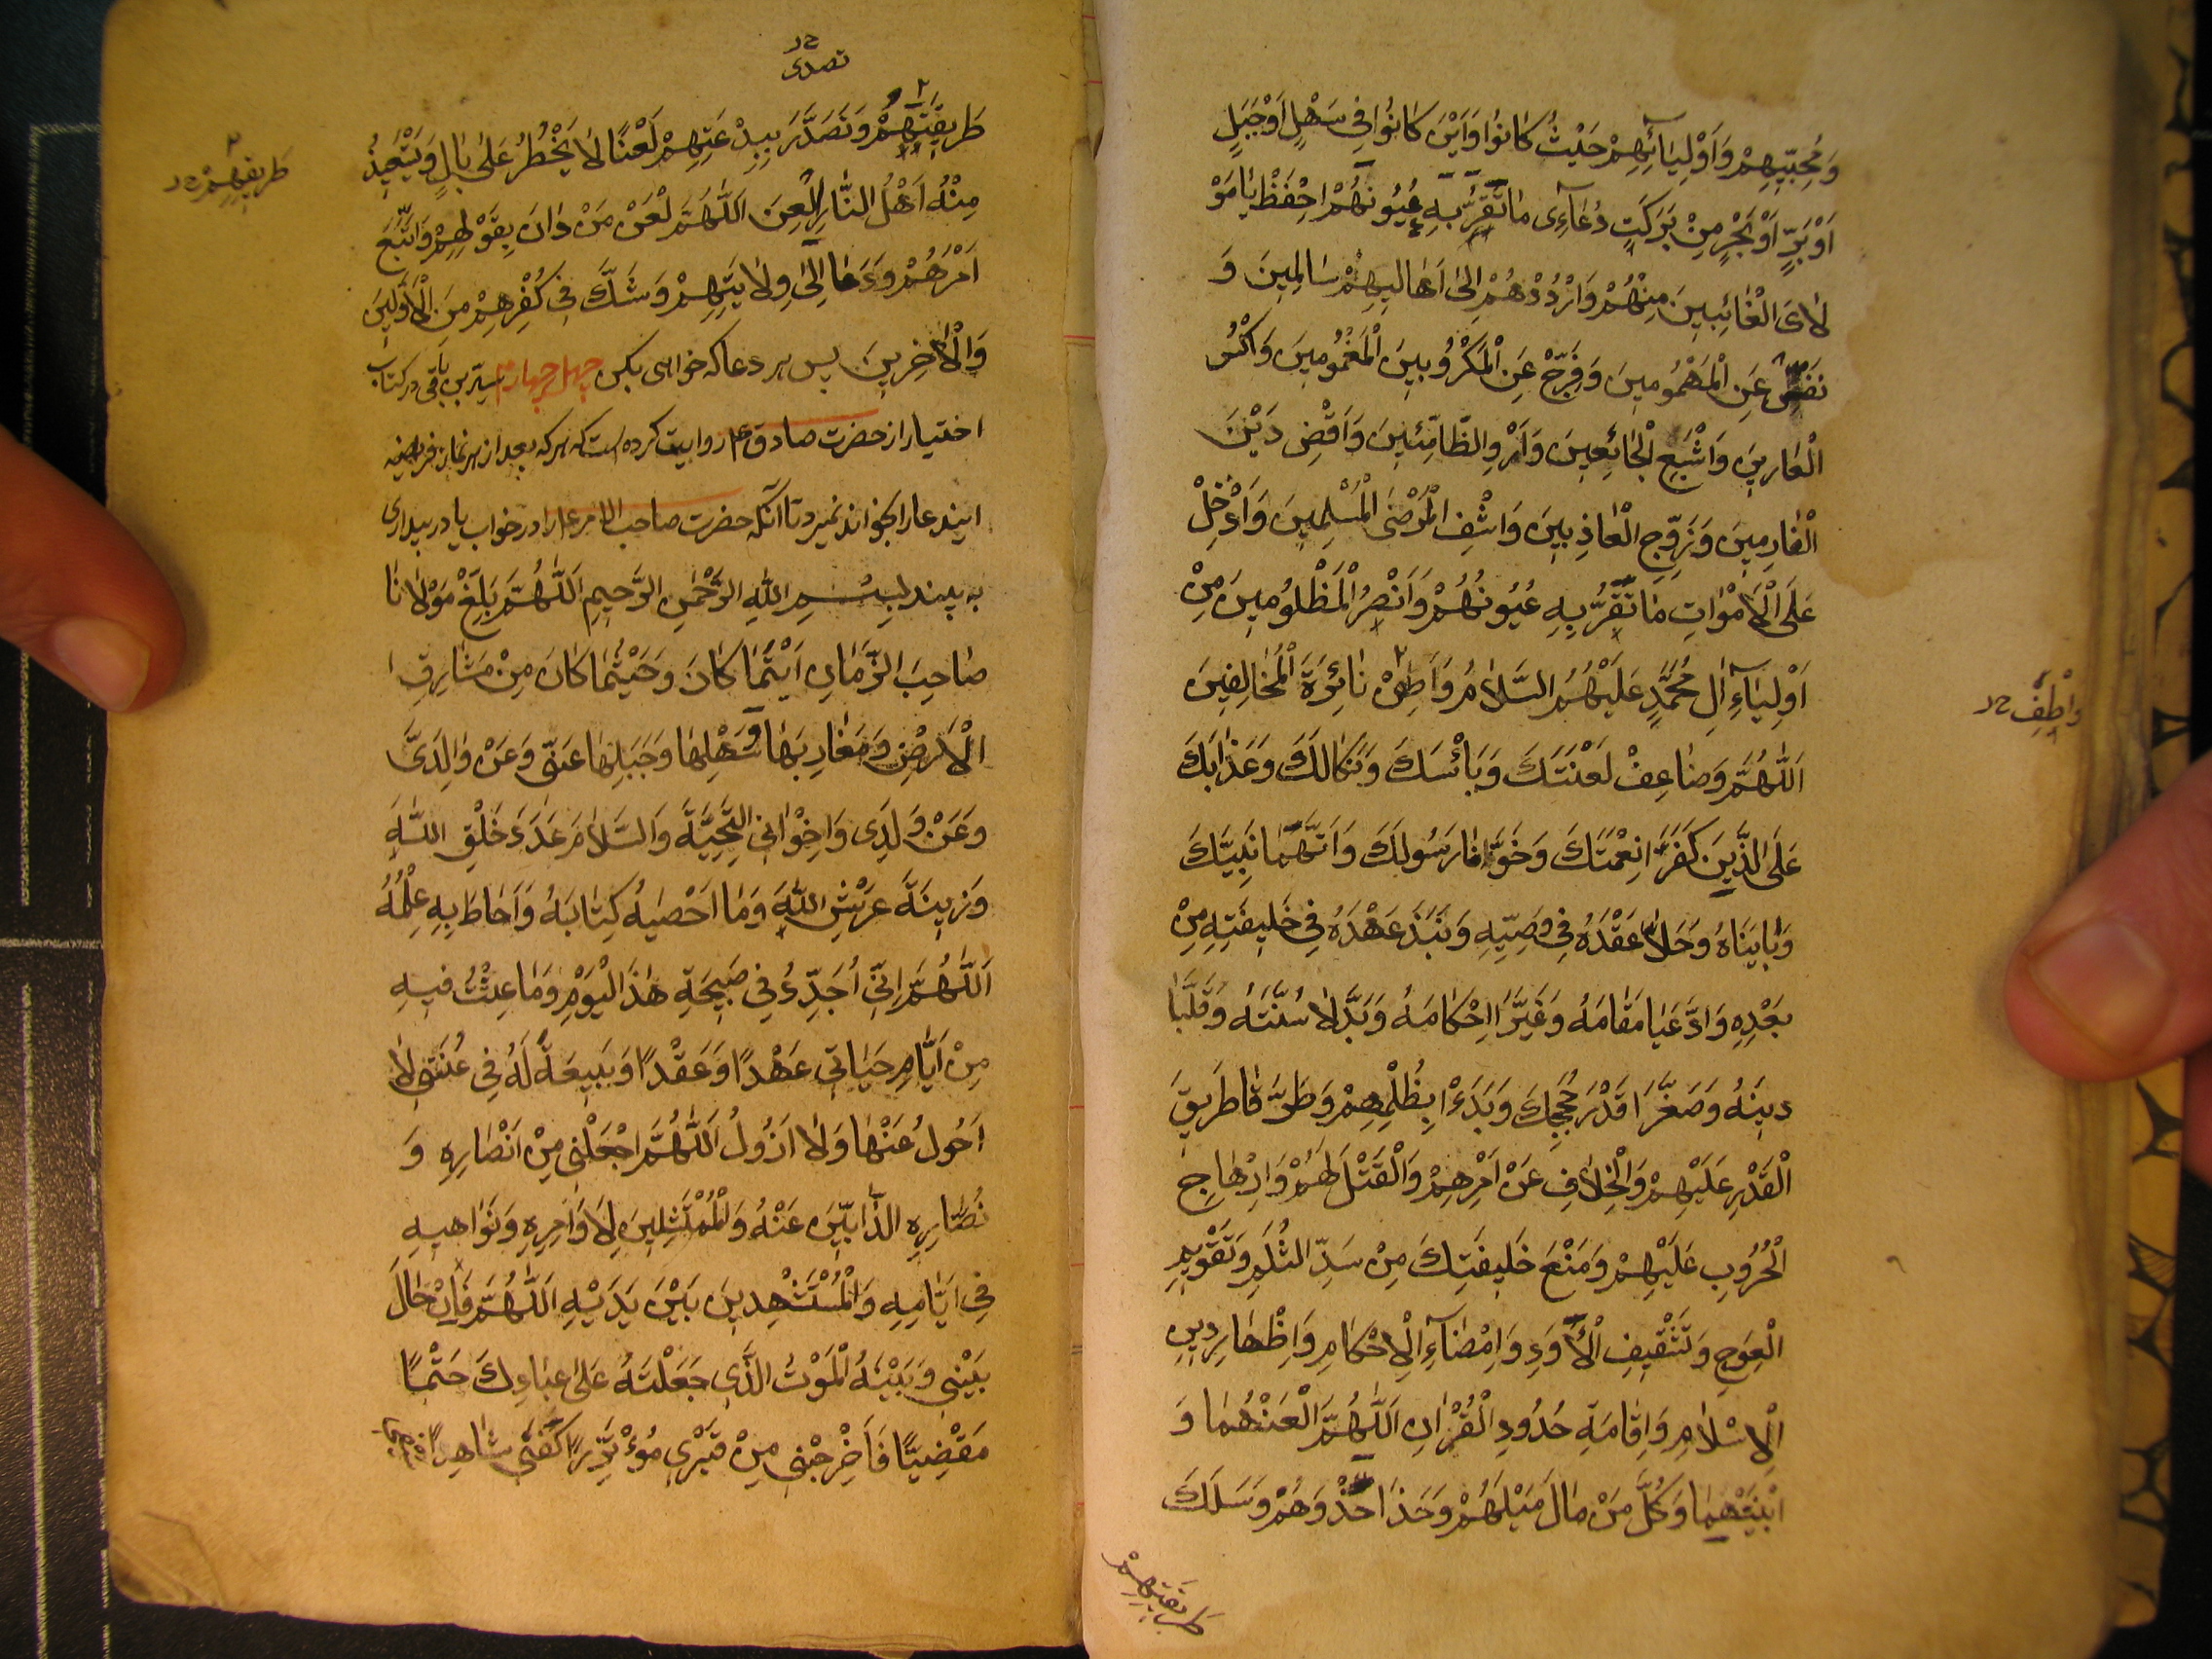 وَمُحِبّيهِمْ وَاَوْلِيٰآئِهِمْ حَيْثُ كٰانُوا وَاَيْنَ كٰانُوا فى سَهْلٍ اَوْجَبَلٍ
اَوْبَرٍّ اَوْبَحْرٍ مِنْ بَرَكَتِ دُعٰآءِى مٰا تَقِرُّ بِهِ عُيُونُهُمْ اِحْفَظْ يٰا مَوْ
لٰاىَ الْغٰائِبينَ مِنْهُمْ وَارْدُدْهُمْ اِلىٰ اَهٰاليهِمْ سٰالِمينَ وَ
نَفِّسْ عَنِ الْمَهْمُومينَ وَفَرِّجْ عَنِ الْمَكْرُوبينَ الْمَغْمُومينَ وَاكْسُ
الْعٰارينَ وَاَشْبِعِ الْجٰائِعينَ وَاَرْوِ الظّٰامِئينَ وَاقْضِ دَيْنَ
الْغٰارِمينَ وَزَوِّجِ الْعٰاذِبينَ وَاشْفِ الْمَرْضَى الْمُسْلِمينَ وَاَدْخِلْ
عَلَى الْاَمْوٰاتِ مٰا تَقِرُّ بِهِ عُيُونُهُمْ وَانْصُرْ الْمَظْلُومينَ مِنْ
اَوْلِيٰآءِ اٰلِ مُحَمَّدٍ عَلَيْهِمُ السَّلٰامُ وَاَطْفِئْ نٰائِرَةَ الْمُخٰالِفينَ
وَاَطْفِ حد
اَللّٰهُمَّ وَضٰاعِفْ لَعْنَتَكَ وَبَأْسَكَ وَنَكٰالَكَ وَعَذٰابَكَ
عَلَى الَّذينَ كَفَرٰا نِعْمَتَكَ وَخَوَّفٰا رَسُولَكَ وَاتَّهَمٰا نَبِيَّكَ
وَبٰايَنٰاهُ وَحَلّٰا عَقْدَهُ فى وَصِيّهِ وَنَبَذَ عَهْدَهُ فى خَليفَتِهِ مِنْ
بَعْدِهِ وَادَّعَيٰا مَقٰامَهُ وَغَيَّرٰا اَحْكٰامَهُ وَبَدَّلٰا سُنَّتَهُ وَقَلَّبٰا
دينَهُ وَصَغَّرٰا قَدْرَ حُجَجِكَ وَبَدَءٰا بِظُلْمِهِمْ وَطَرَّقٰا طَريقَ
الْغَدْرِ عَلَيْهِمْ وَالْخِلٰافِ عَنْ اَمْرِهِمْ وَالْقَتْلَ لَهُمْ وَاِرْهٰاجِ
الْحُرُوبِ عَلَيْهِمْ وَمَنْعَ خَليفَتِكَ مِنْ سَدِّ الثُّلَمِ وَتَقْويمِ
الْعِوَجِ وَتَثْقيفِ الْاَوَدِ وَاِمْضٰآءِ الْاَحْكٰامِ وَاِظْهٰارِ دينِ
الْاِسْلٰامِ وَاِقٰامَةِ حُدُودِ الْقُرْاٰنِ اَللّٰهُمَّ الْعَنْهُمٰا وَ
ابْنَتَيْهِمٰا وَكُلَّ مَنْ مٰالَ مَيْلَهُمْ وَحَذٰا حَذْوَهُمْ وَسَلَكَ
طَريقَتَهُمْ
تصدى
حد
طَريقَتَهُمْ وَتَصَدَّرَ بِبِدْعَتِهِمْ لَعْنًا لٰا يَخْطُرُ عَلىٰ بٰالٍ وَيَسْتَعيذُ
طَريقَهُمْ حد
مِنْهُ اَهْلُ النّٰارِ اِلْعَنِ اَللّٰهُمَّ لْعَنْ مَنْ دٰانَ بِقَوْلِهِمْ وَاتَّبَعَ
اَمْرَهُمْ وَدَعٰا اِلىٰ وِلٰايَتِهِمْ وَشَكَّ فى كُفْرِهِمْ مِنَ الْاَوَّلينَ
وَالْاٰخِرينَ پس هر دعا كه خواهى بكن چهل چهارم سيّد بن باقى در كتاب
اختيار از حضرت صادق ع روايت كرده است كه هر كه بعد از هر نماز فريضه
ايندعا را بخواند نميرد تا آنكه حضرت صاحب الامر ع را در خواب يا در بيدارى
به بيند بِسْمِ اللّٰهِ الرَّحْمٰنِ الرَّحيمِ اَللّٰهُمَّ بَلِّغْ مَوْلٰانٰا
صٰاحِبَ الزَّمٰانِ اَيْنَمٰا كٰانَ وَحَيْثُمٰا كٰانَ مِنْ مَشٰارِقِ
الْاَرْضِ وَمَغٰارِبِهٰا وَسَهْلِهٰا وَجَبَلِهٰا عَنّى وَعَنْ وٰالِدَىَّ
وَعَنْ وُلْدى وَاِخْوٰانى التَّحِيَّةَ وَالسَّلٰامَ عَدَدَ خَلْقِ اللّٰهِ
وَزينَةَ عَرْشِ اللّٰهِ وَمٰا اَحْصٰيهُ كِتٰابُهُ وَاَحٰاطَ بِهِ عِلْمُهُ
اَللّٰهُمَّ اِنّى اُجَدِّدُ فى صَبيحَةِ هٰذَا الْيَوْمِ وَمٰا عِشْتُ فيهِ
مِنْ اَيّٰامِ حَيٰاتى عَهْدًا وَعَقْدًا وَبَيعَةً لَهُ فى عُنُقى لٰا
اَحُولُ عَنْهٰا وَلٰا اَزُولُ اَللّٰهُمَّ اجْعَلْنى مِنْ اَنْصٰارِهِ وَ
نُصّٰارِهِ الذّٰابّينَ عَنْهُ وَالْمُمْتَثِلينَ لِاَوٰامِرِهِ وَنَوٰاهيهِ
فى اَيّٰامِهِ وَالْمُسْتَشْهِدينَ بَيْنَ يَدَيْهِ اَللّٰهُمَّ فَاِنْ حٰالَ
بَيْنى وَبَيْنَهُ الْمَوْتُ الَّذى جَعَلْتَهُ عَلىٰ عِبٰادِكَ حَتْمًا
مَقْضِيًّا فَاَخْرِجْنى مِنْ قَبْرى مُؤْتَزِرًا كَفَنى شٰاهِرًا